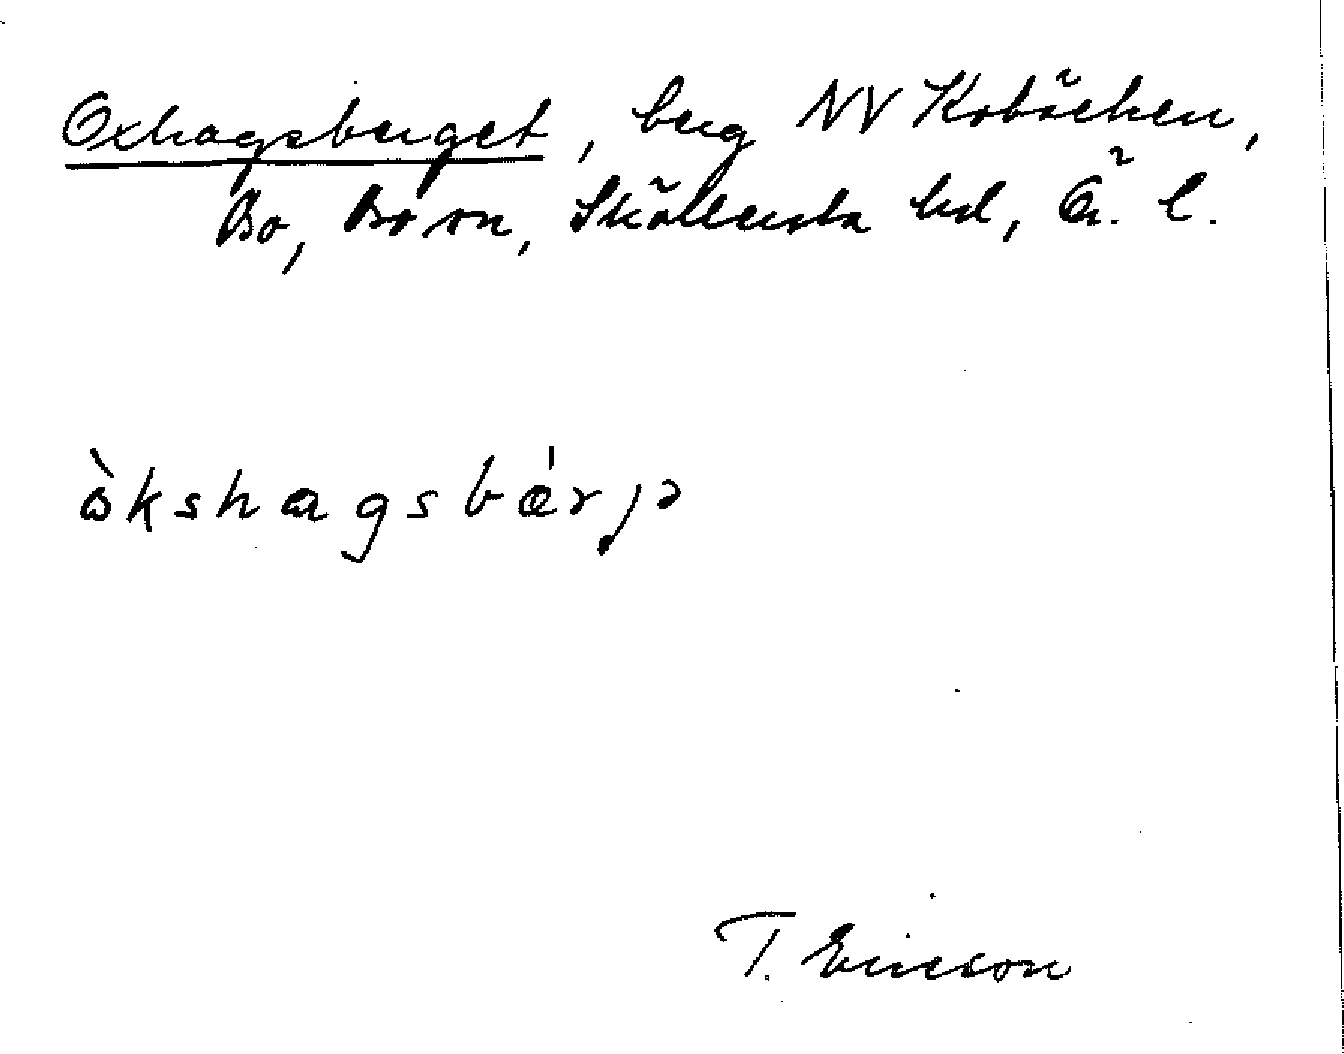 Oxhagsberget, berg NV Kobäcken,
Bo, Bo sn, Sköllersta hd, Ör. l.
òkshagsbǽrjə
T. Ericson